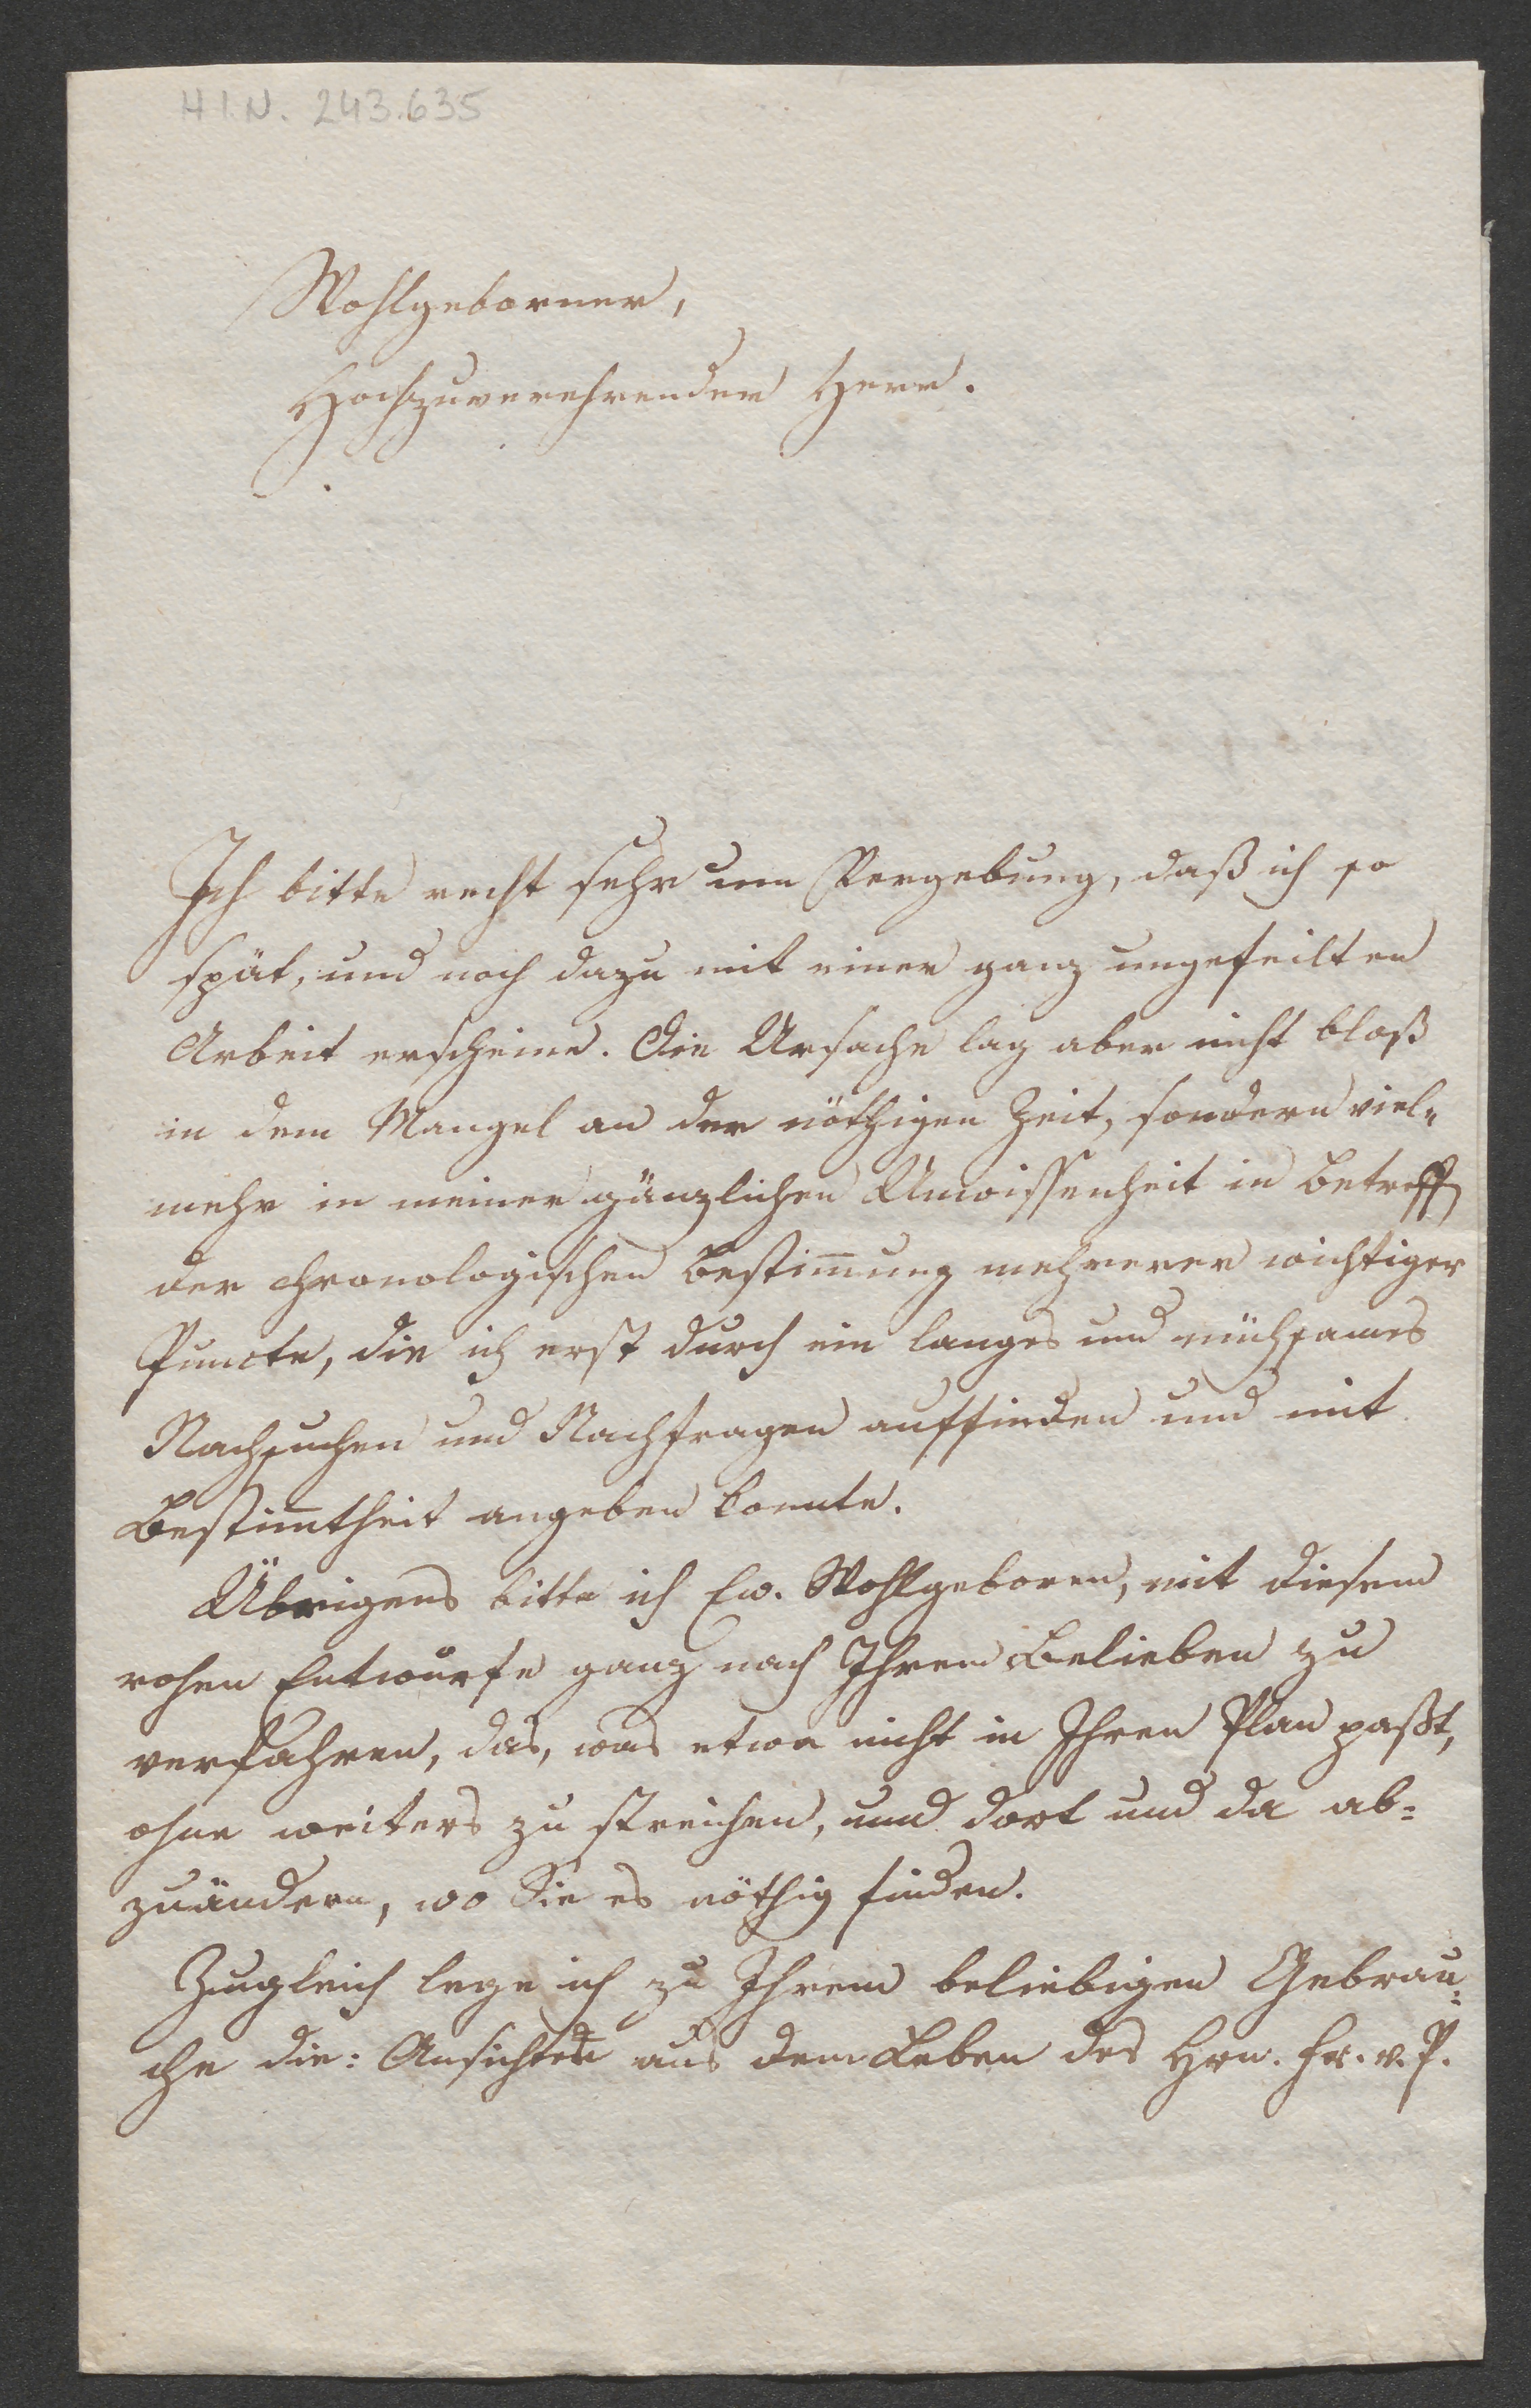 H.I.N. 243.635
Wohlgeborner,
Hochzuverehrender Herr.
Ich bitte recht sehr um Vergebung, daß ich so
spät, und noch dazu mit einer ganz ungefeilten
Arbeit erscheine. Die Ursache lag aber nicht bloß
in dem Mangel an der nöthigen Zeit, sondern viel„
mehr in meiner gänzlichen Unwissenheit in Betreff
der chronologischen Bestim̅ung mehrerer wichtiger
Puncte, die ich erst durch ein langes und mühsames
Nachsuchen und Nachfragen auffinden und mit
Bestim̅theit angeben konnte.
Übrigens bitte ich Ew. Wohlgeboren, mit diesem
rohen Entwurfe ganz nach Ihrem Belieben zu
verfahren, das, was etwa nicht in Ihren Plan paßt,
ohne weiters zu streichen, und dort und da ab=
zuändern, wo Sie es nöthig finden.
Zugleich lege ich zu Ihrem beliebigen Gebrau=
che die: Ansichten aus dem Leben des Hrn. Fr. v. P.